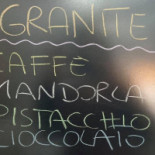 GRANITE
CAFFE
MANDORLA
PISTACCHIO
CIOCCOLATO